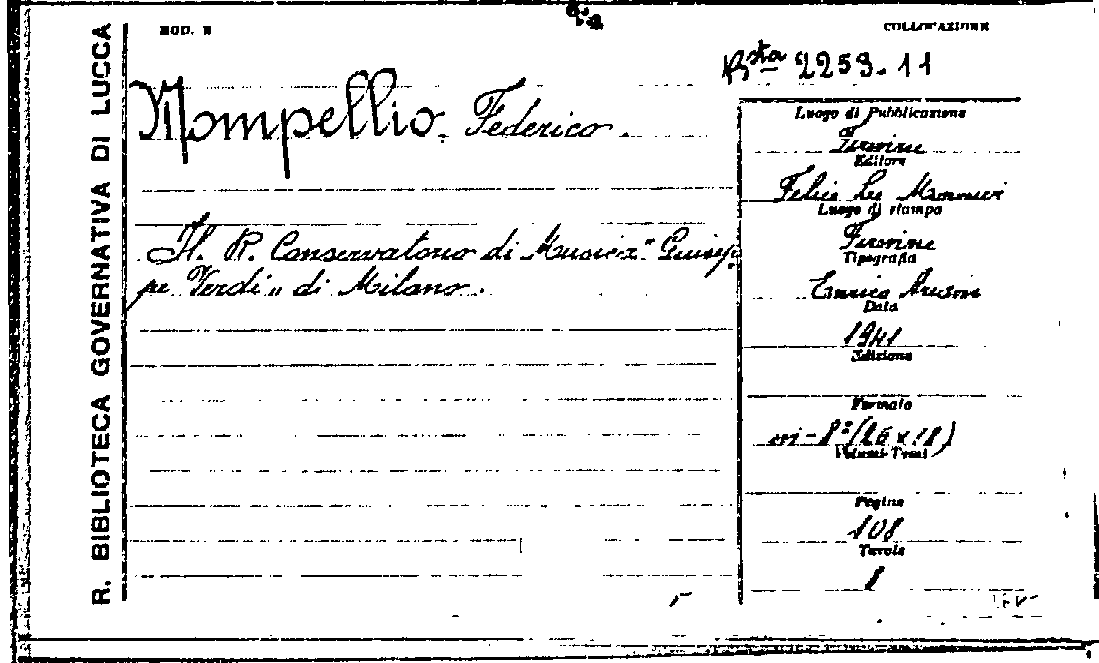 R. BIBLIOTECA GOVERNATIVA DI LUCCA
MOD. N
COLLOCAZIONE
Bsta 2253.11
Mompellio Federico.
Il R. Conservatorio di Musica "Giusep
pe Verdi" di Milano.
Luogo di Pubblicazione
Firenze
Editore
Felice Le Monnier
Luogo di stampa
Firenze
Tipografia
Enrico Ariani
Data
1941
Edizione
Formato
in-8º (26 x 18)
Volumi-Tomi
Pagine
108
Tavole